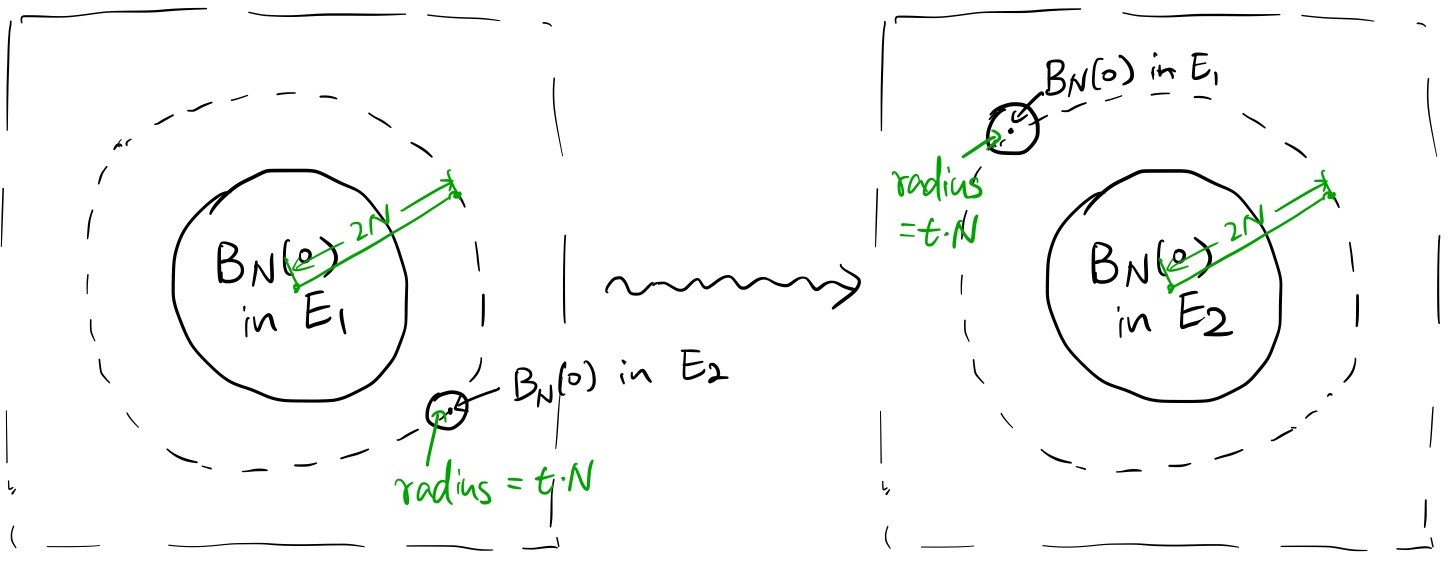 2N
B_N(0)
in E₁
B_N(0) in E₂
radius = t·N
B_N(0) in E₁
radius
= t·N
2N
B_N(0)
in E₂